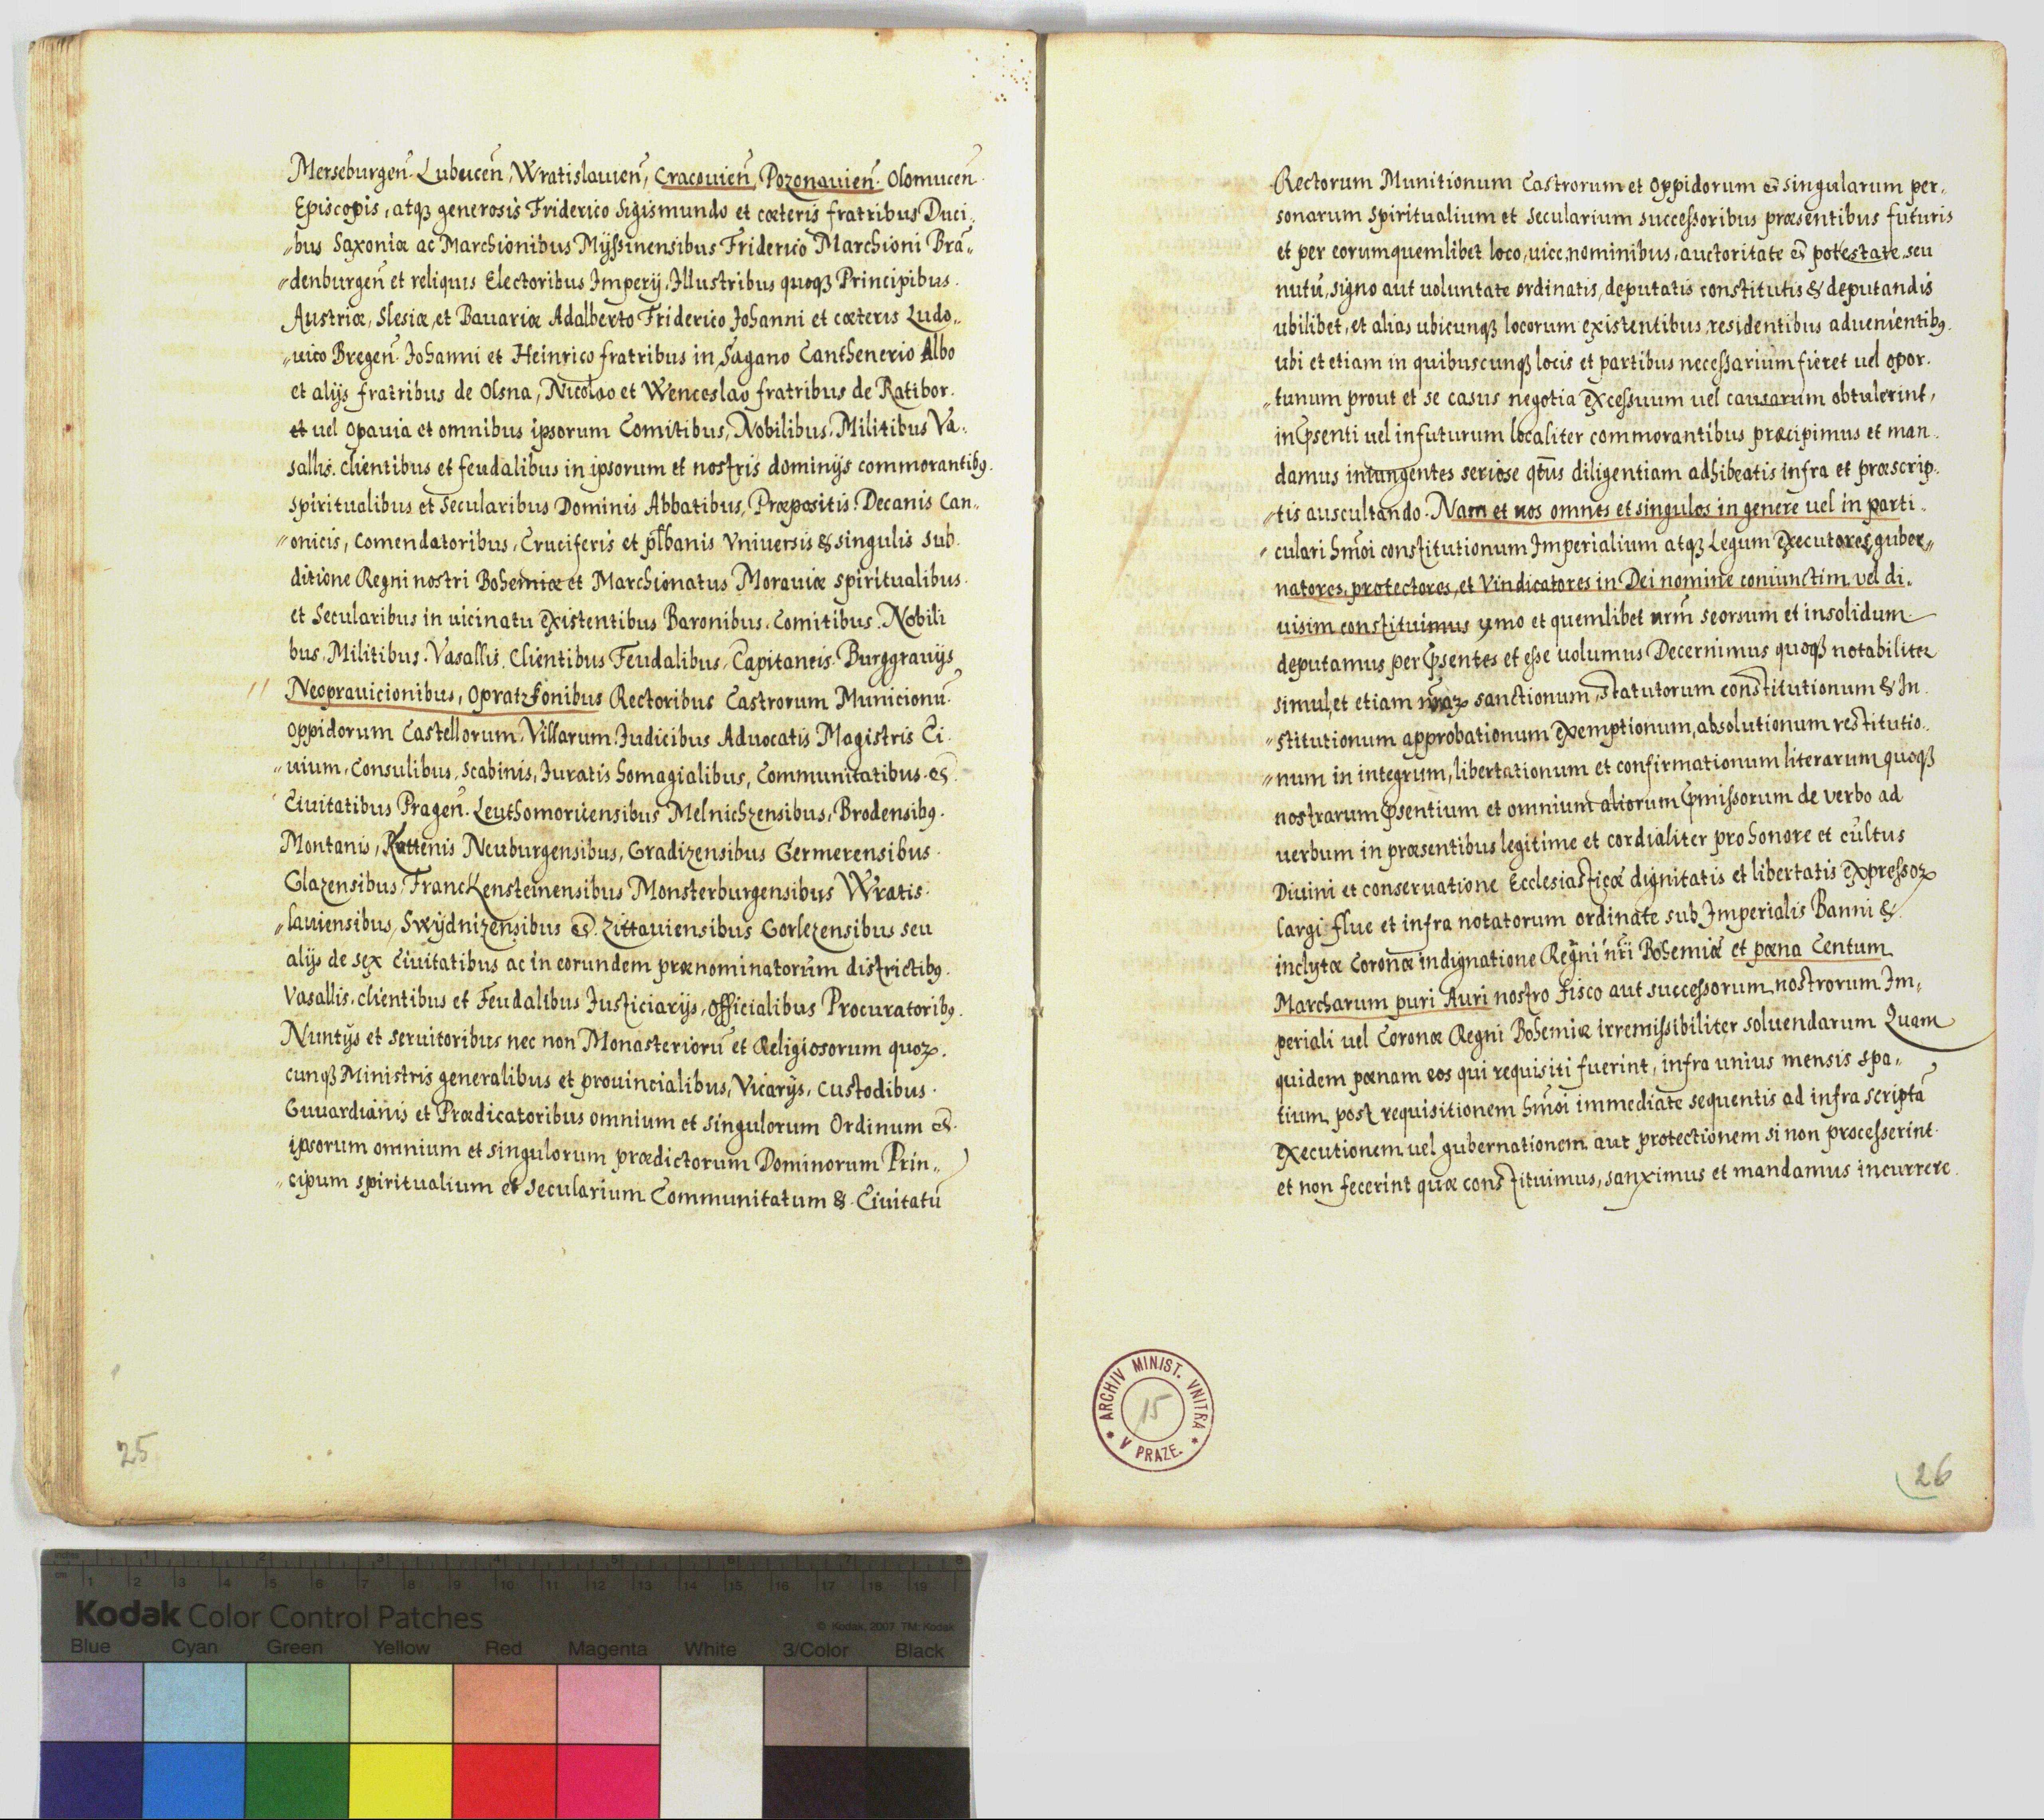 Merseburgen̄. Lubucen̄, Wratislauien̄, Cracouien̄, Pozonauien̄. Olomucen̄
Episcopis, atqꝫ generosis Friderico Sigismundo et cæteris fratribus Duci„
„bus Saxoniæ ac Marchionibus Myssinensibus Friderico Marchioni Brā„
„denburgen̄ et reliquis Electoribus Imperij, Illustribus quoqꝫ Principibus.
Austriæ, Slesiæ, et Bauariæ Adalberto Friderico Johanni et cæteris Ludo„
„uico Bregen̄. Johanni et Heinrico fratribus in Sagano Canthenerio Albo
et alijs fratribus de Olsna, Nicolao et Wenceslao fratribus de Ratibor.
et uel Opauia et omnibus ipsorum Comitibus, Nobilibus, Militibus Va.
sallis. clientibus et feudalibus in ipsorum et nostris dominijs commorantibꝰ.
spiritualibus et Secularibus Dominis Abbatibus, Præpositis. Decanis Can„
„onicis, Comendatoribus, Cruciferis et pl̄banis Vniuersis & singulis sub.
ditione Regni nostri Bohemiæ et Marchionatus Morauiæ spiritualibus.
et Secularibus in uicinatu Existentibus Baronibus. Comitibus. Nobili
bus, Militibus. Vasallis. Clientibus Feudalibus, Capitaneis. Burggrauijs
Neoprauicionibus, Opratzkonibus Rectoribus Castrorum Municionū.
Oppidorum Castellorum, Villarum. Judicibus Aduocatis Magistris Ci.
„uium, Consulibus, Scabinis, Juratis homagialibus, Communitatibus. &
Ciuitatibus Pragen̄. Leuthomoricensibus Melnichzensibus, Brodensibꝰ.
Montanis, Kuttenis Neuburgensibus, Gradizensibus Germerensibus.
Glazensibus, Franckensteinensibus Monsterburgensibus Wratis.
„lauiensibus, Swydnizensibus &. Zittauiensibus Gorlezensibus seu
alijs de sex Ciuitatibus ac in eorundem prænominatorum districtibꝰ.
Vasallis, clientibus et Feudalibus Justiciarijs, officialibus Procuratoribꝰ.
Nuntijs et seruitoribus nec non Monasteriorū et Religiosorum quoꝝ.
cunqꝫ Ministris generalibus et prouincialibus, Vicarijs, Custodibus.
Guuardianis et Prædicatoribus omnium et singulorum Ordinum &.
ipsorum omnium et singulorum prædictorum Dominorum Prin„
„cipum spiritualium et Secularium Communitatum &. Ciuitatū
25
Rectorum Munitionum Castrorum et Oppidorum & singularum per„
sonarum Spiritualium et Secularium successoribus præsentibus futuris
et per eorumquemlibet loco, uice, nominibus, auctoritate & potestate seu
nutu, signo aut uoluntate ordinatis, deputatis constitutis & deputandis
ubilibet, et alias ubicunqꝫ locorum existentibus, residentibus aduenientibꝰ.
ubi et etiam in quibuscunqꝫ locis et partibus necessarium fieret uel opor.
„tunum prout et se casus negotia Excessuum uel causarum obtulerint,
in p̄senti uel infuturum localiter commorantibus præcipimus et man.
damus iniungentes seriose qt̄us diligentiam adhibeatis infra et præscrip.
„tis auscultando. Nam et uos omnes et singulos in genere uel in parti.
„culari hm̄oi constitutionum Imperialium atqꝫ Legum Executores, guber„
natores, protectores, et Vindicatores in Dei nomine coniunctim vel di.
uisim constituimus ymo et quemlibet ur̄m seorsum et insolidum
deputamus per p̄sentes et esse uolumus Decernimus quoqꝫ notabiliter
simul, et etiam nr̄aꝝ sanctionum, statutorum constitutionum & In.
„stitutionum approbationum Exemptionum, absolutionum restitutio„
„num in integrum, libertationum et confirmationum literarum quoqꝫ
nostrarum p̄sentium et omnium aliorum p̄missorum de verbo ad
uerbum in præsentibus legitime et cordialiter pro honore et cultus
Diuini et conseruatione Ecclesiasticæ dignitatis et libertatis Expressoꝝ
largi flue et infra notatorum ordinate sub Imperialis Banni &.
inclytæ Coronæ indignatione Regni nr̄i Bohemiæ et pœna Centum
Marcharum puri Auri nostro Fisco aut successorum nostrorum Im„
periali uel Coronæ Regni Bohemiæ irremissibiliter soluendarum Quam
quidem pœnam eos qui requisiti fuerint, infra unius mensis spa„
tium post requisitionem hm̄oi immediate sequentis ad infra scriptā
Executionem uel gubernationem aut protectionem si non processerint.
et non fecerint quæ constituimus, sanximus et mandamus incurrere.
ARCHIV MINIST. VNITRA V PRAZE.
15
26
Kodak Color Control Patches
© Kodak, 2007 TM: Kodak
Blue Cyan Green Yellow Red Magenta White 3/Color Black